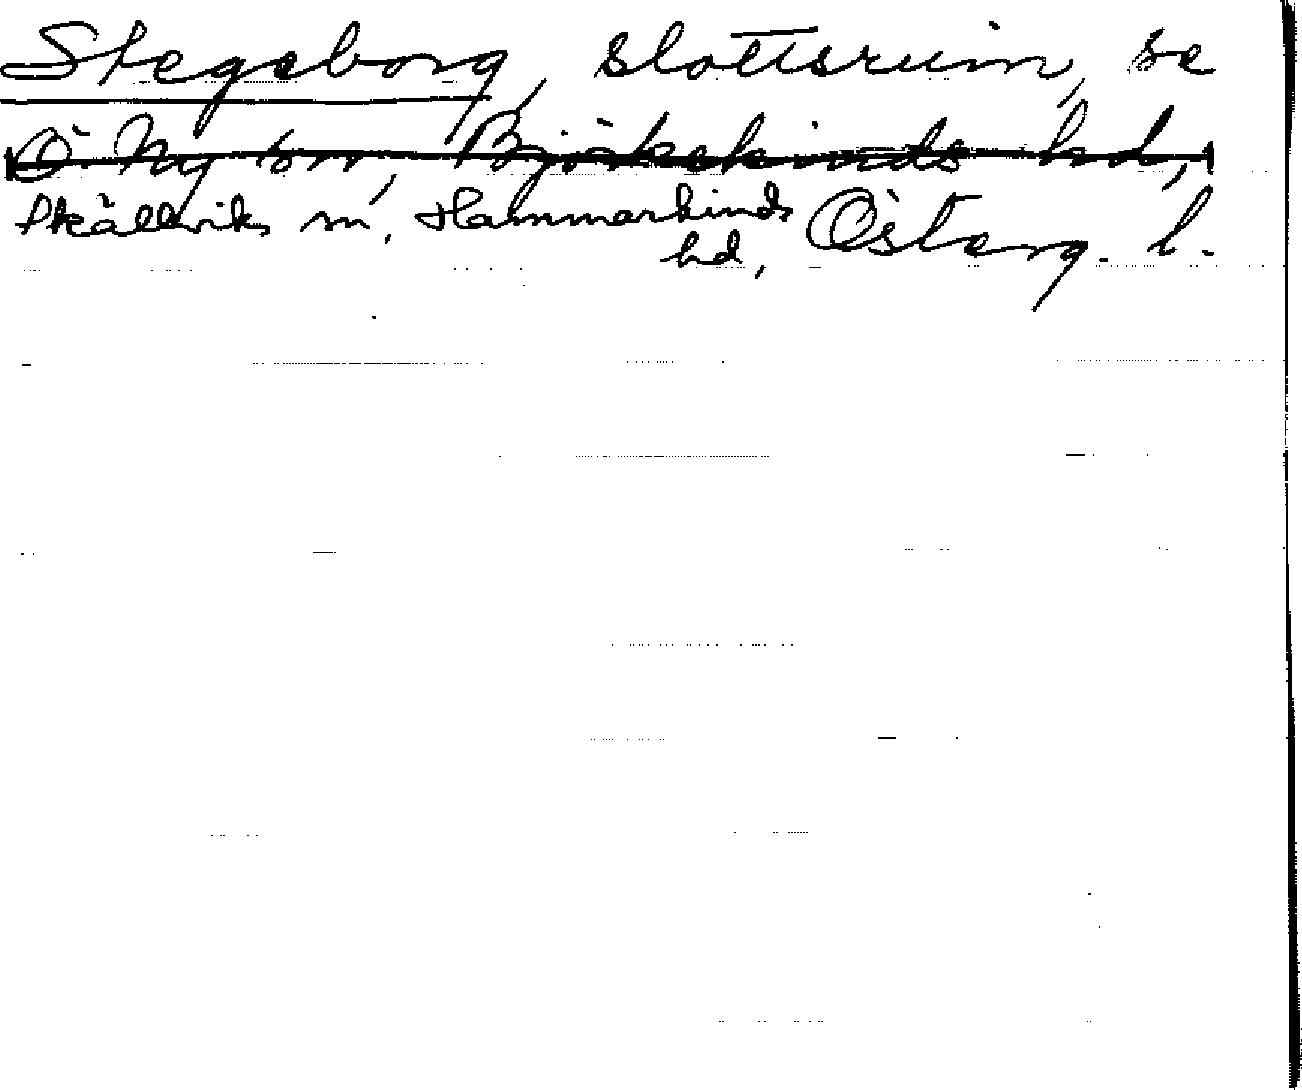 Stegeborg, slottsruin, se
Ö. Ny sn, Björkekinds hd,
Skällviks sn, Hammarkinds
hd, Österg. l.